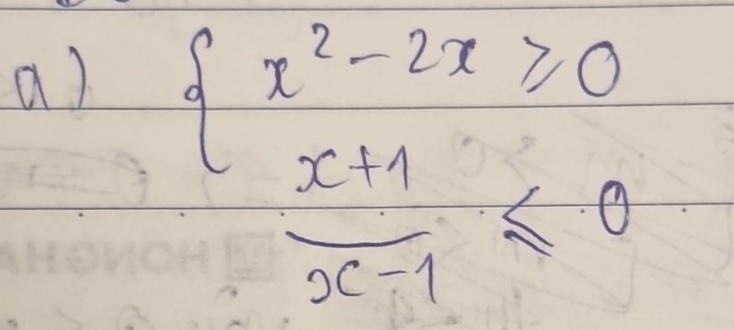 a) { x² - 2x ≥ 0
x+1 / x-1 ≤ 0